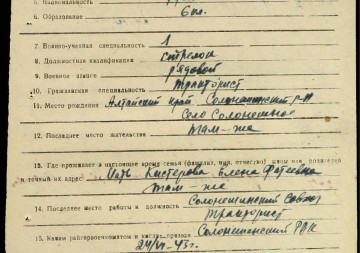 5. Национальность
6. Образование 6 кл.
7. Военно-учетная специальность 1
8. Должностная квалификация стрелок
9. Военное звание рядовой
10. Гражданская специальность тракторист
11. Место рождения Алтайский край Солонешинский р-н
Село Солонешное
12. Последнее место жительства там-же
13. Где проживает в настоящее время семья (фамилия, имя, отчество) жены или родителей
и точный их адрес Мать Кистерова Елена
там-же
14. Последнее место работы и должность Солонешинский
тракторист
15. Каким райгорвоенкоматом и когда призван Солонешенский РВК
43 г.